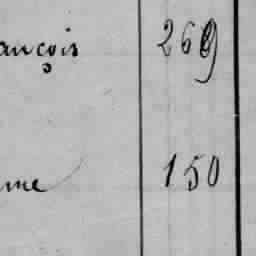 ançois 269
me 150